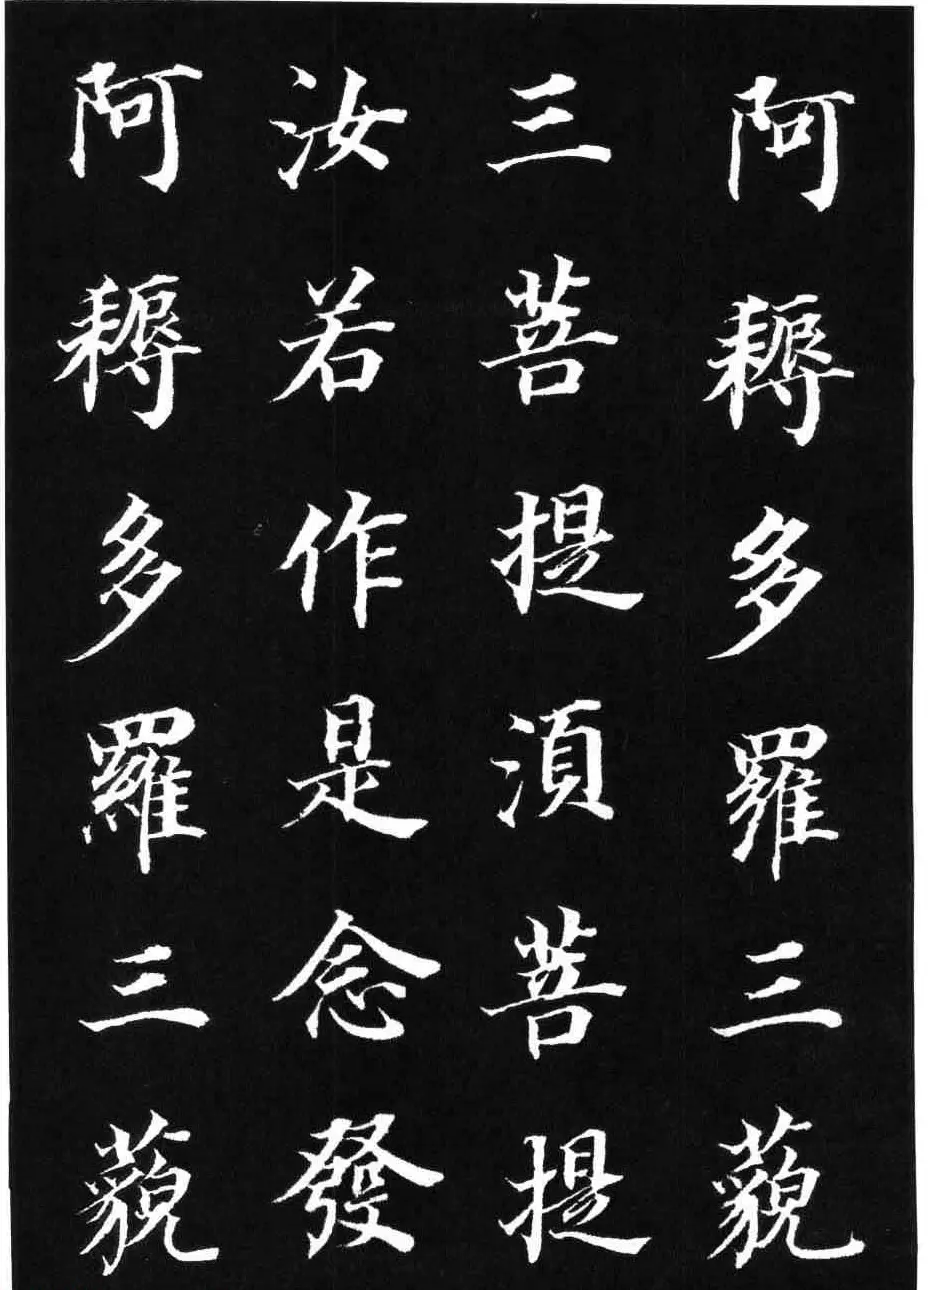 阿耨多羅三藐
三菩提湏菩提
汝若作是念發
阿耨多羅三藐